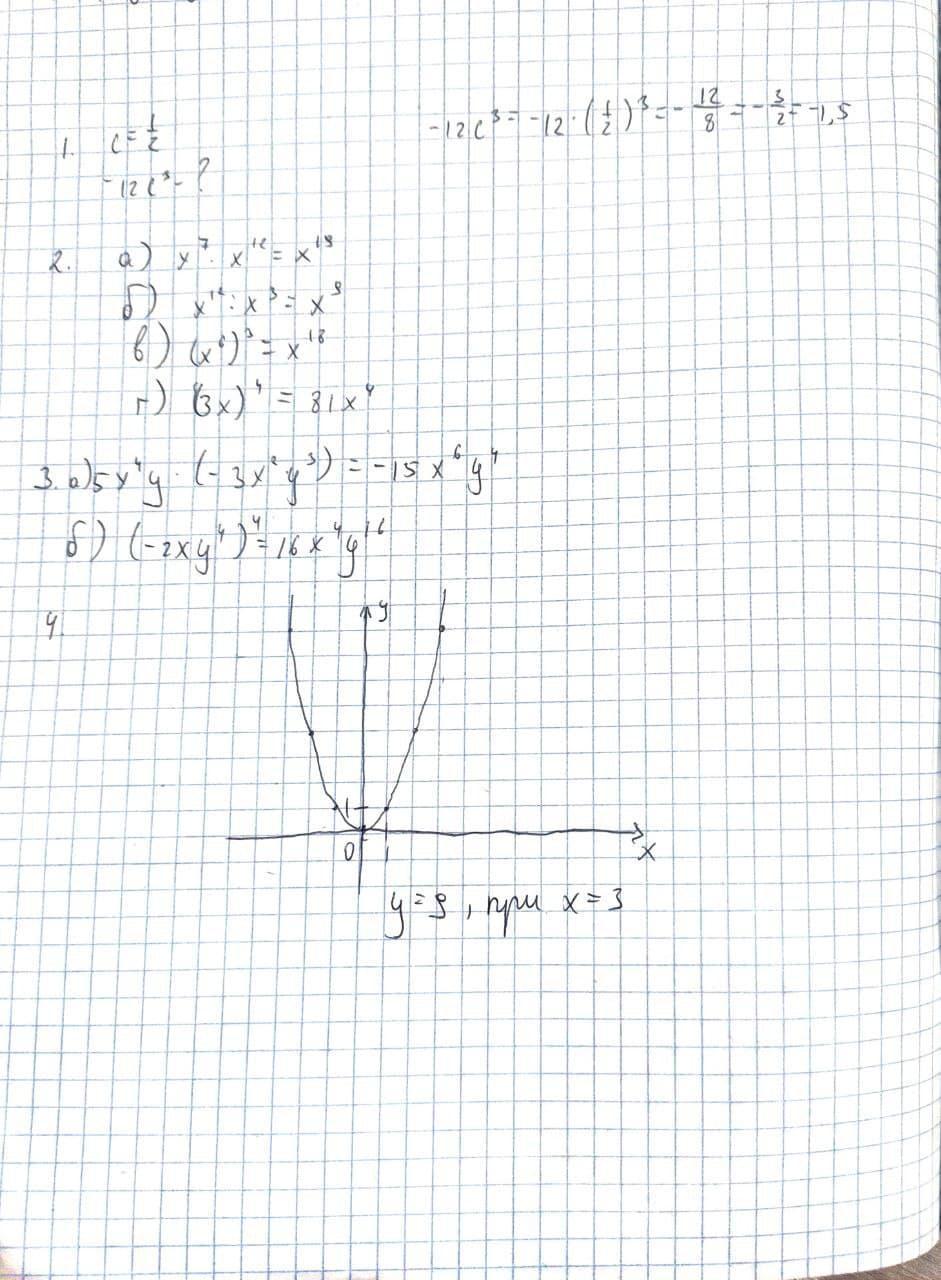 1. c = 1/2
-12c³ - ?
-12c³ = -12 · (1/2)³ = -12/8 = -3/2 = -1,5
2. а) x⁷ · x¹² = x¹⁹
б) x¹² : x³ = x⁹
в) (x⁶)³ = x¹⁸
г) (3x)⁴ = 81x⁴
3. а) 5x⁴y · (-3x²y³) = -15x⁶y⁴
б) (-2xy⁴)⁴ = 16x⁴y¹⁶
4.
y
1
0 1 x
y = 9, при x = 3